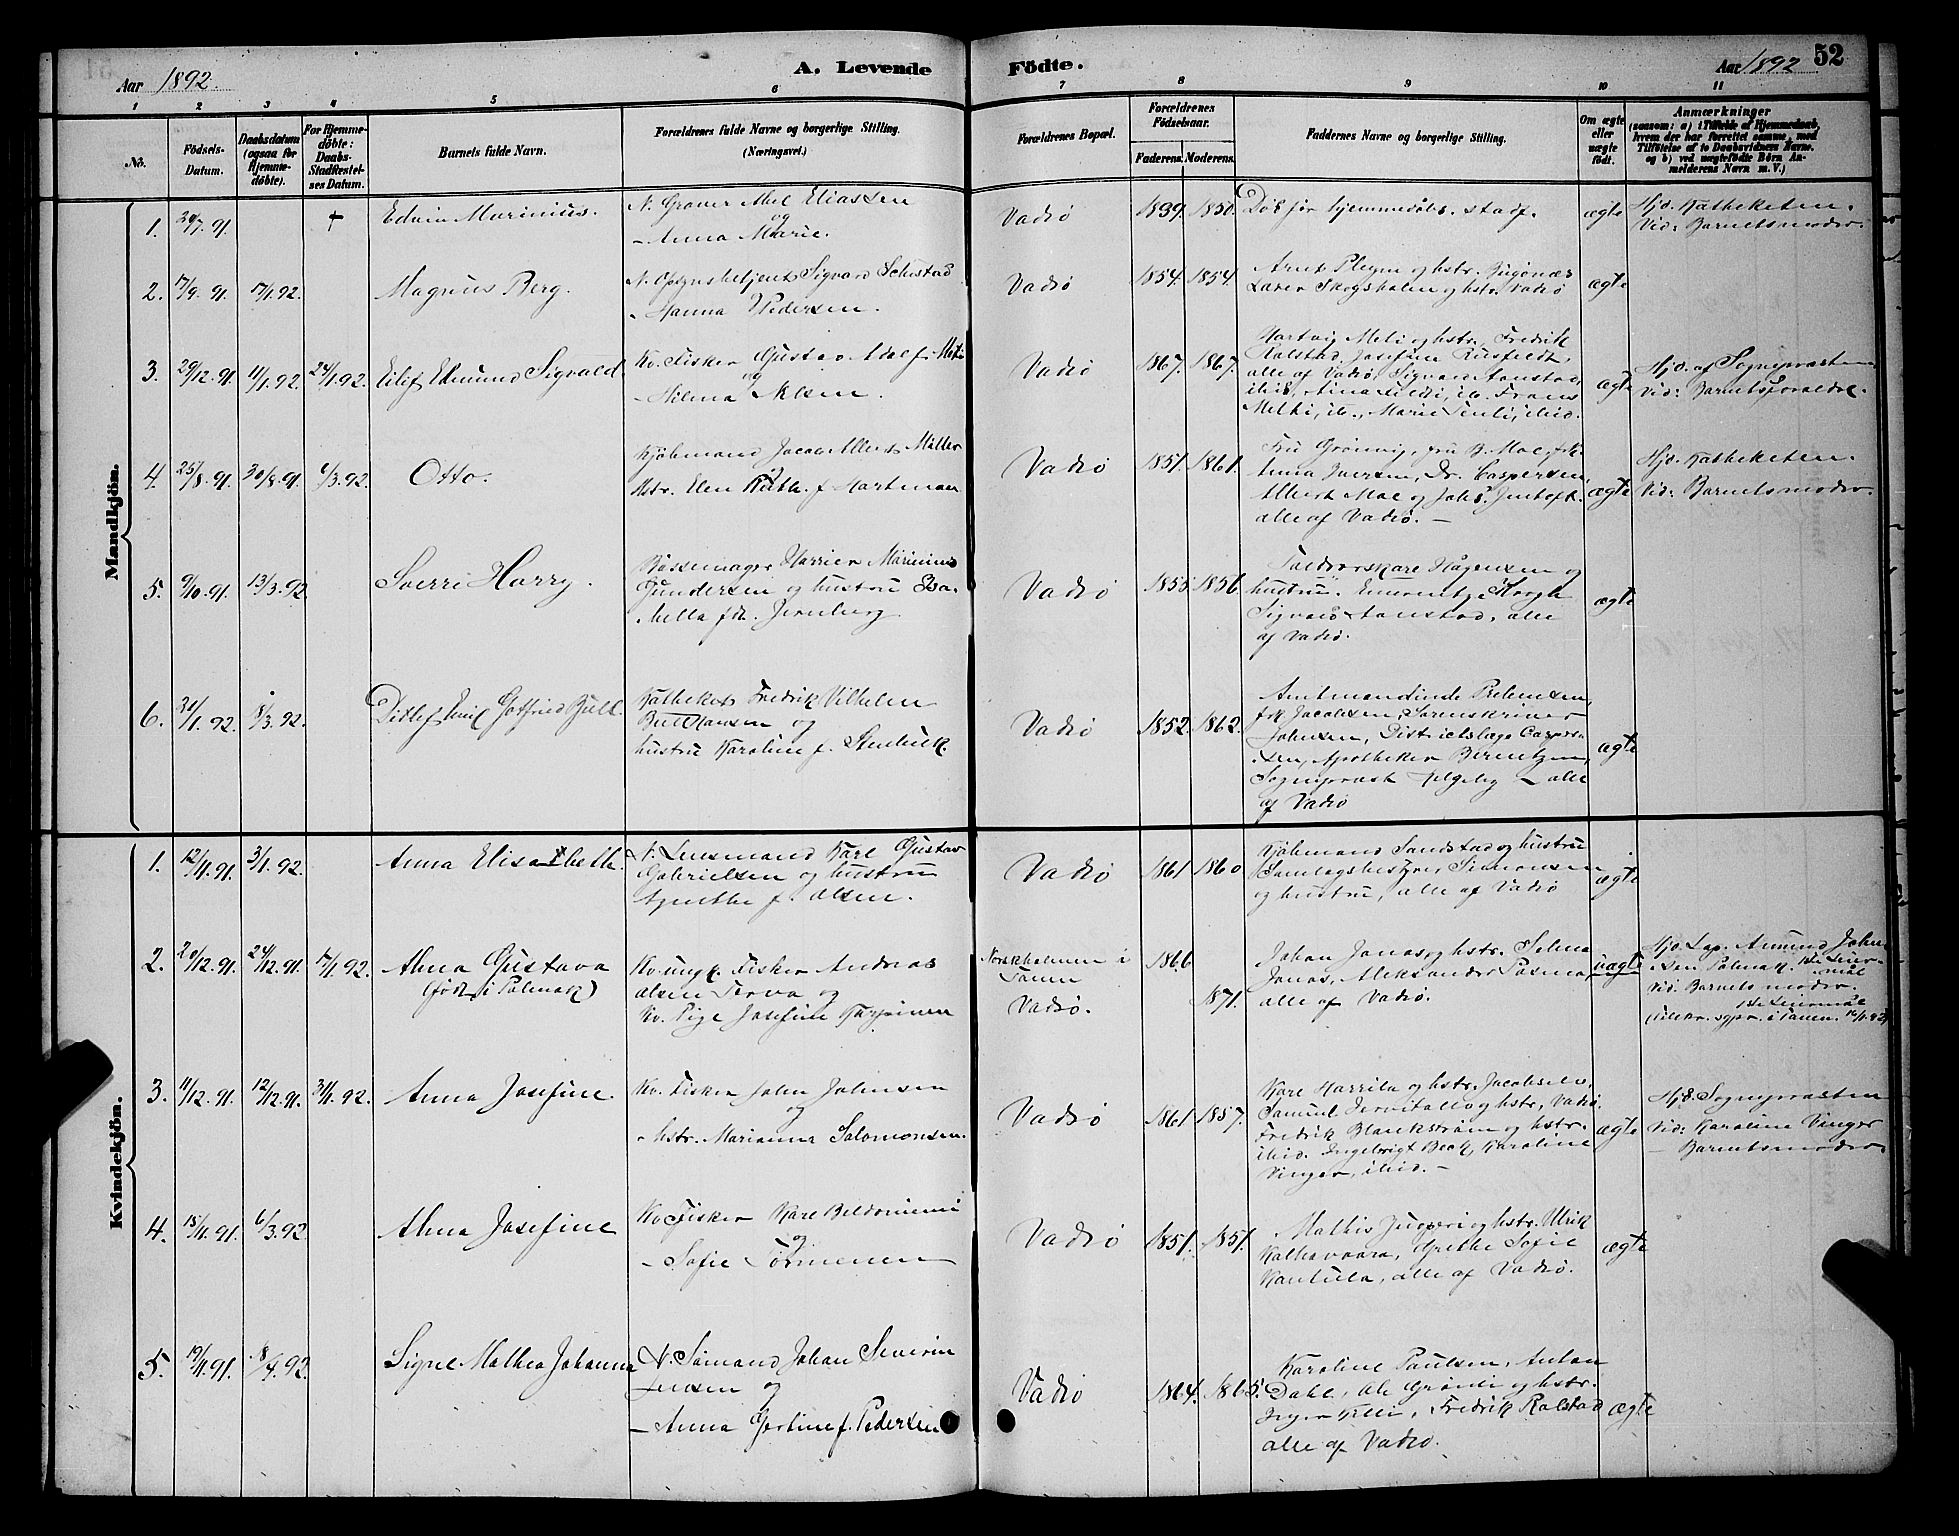 Aar 1892.
A. Levende
Födte.
Aar 1892
52
1 2 3 4 5 6 7 8 9 10 11
No.
Födsels-
Datum.
Daabsdatum
(ogsaa for
Hjemme-
döbte).
For Hjemme-
döbte:
Daabs-
Stadfæstel-
ses Datum.
Barnets fulde Navn.
Forældrenes fulde Navne og borgerlige Stilling.
(Næringsvei.)
Forældrenes Bopæl.
Forældrenes
Födselsaar.
Faderens. Moderens.
Faddernes Navne og borgerlige Stilling.
Om ægte
eller
uægte
födt.
Anmærkninger
(saasom: a) i Tilfælde af Hjemmedaab,
hvem der har forrettet samme, med
Tilföielse af to Daabsvidners Navne.
og b) ved uægtefödte Börn An-
melderens Navn m. V.)
Mandkjön.
1. 24/7.91. + Edvin Marinius.
N. Graver Mel Eliassen
og
- Anna Marie.
Vadsø 1839. 1850. Død før hjemmedåbs. stadf. ægte
Hjd. Katheketen.
Vid: Barnetsmoder.
2. 17/9.91. 17/1.92. Magnus Berg.
N. Opsynsbetjent Sigvard Schistad
- Hanna Pedersen.
Vadsø 1854. 1854.
Arnt Pleym og hstr. Bugønæs
Laver Skogsholm og hstr. Vadsø
ægte
3. 29/12.91. 11/1.92. 24/1.92. Eilif Edmund Sigvald
Kv. Fisker Gustav Adolf
og
- Hilma Nelsen.
Vadsø 1867. 1867.
Hartvig Meli og hstr. Fredrik
Rolstad, Josefine
alle af Vadsø, Sigvard Aanstad,
ibid,
ægte
Hjd. af Sognepræsten
Vid: Barnetsforældre.
4. 25/8.91. 30/8.91. 6/3.92. Otto.
Kjøbmand Jacob Albert Müller
hstr. Elen Kath. f Hartman
Vadsø 1851. 1861.
Fru Grønvig, fru B. Moe, frk.
Anna Iversen, Dr. Caspersen,
Albert Moe og Johs. Jentoft.
alle af Vadsø. -
ægte
Hjd. Katheketen.
Vid: Barnetsmoder.
5. 9/10.91. 13/3.92 Sverri Harry.
Bøssemager Marinius
Gundersen og hustru Isa-
bella fdt. Jernberg
Vadsø 1855 1856.
Hågensen og
hustru.
Sigvald Aanstad, alle
af Vadsø.
ægte
6. 21/1.92. 8/3.92. Ditlef Emil Gotfried Bull.
Katheket Fredrik Vilhelm
Bull Hansen og
hustru Karoline f. Stenbuck.
Vadsø 1852. 1862.
Amtmandinde Prebensen,
frk Jacobsen, Sorenskriver
Johnsen, Distriktslæge Caspers-
sen, Apotheker Berentzen,
Sogneprest Helgeby - alle
af Vadsø
ægte
Kvindekjön.
1. 12/11.91. 3/1.92. Anna Elisabeth.
N. Lensmand Karl Gustav
Gabrielsen og hustru
Agnethe f. Olsen.
Vadsø 1861 1860
Kjøbmand Sandstad og hustru
Samlagsbestyrer Simonsen
og hustru, alle af Vadsø
ægte
2. 20/12.91. 24/12.91. 17/1.92. Alma Gustava
(født i Polmak)
Kv. ungk. Fisker Andreas
Olsen Terva og
Kv. Pige Josefine
Norskholmen i
Tanen
Vadsø.
1866
1871.
Johan Jonas og hstr. Selma
Jonas, Aleksander
alle af Vadsø.
uægte
Hjd. Lap. Amund John-
sen Polmak. 1ste Leier-
mål
Vid. Barnets moder.
1ste Leiermål
(Tilskr. sgpr. i Tanen. 16/1.92)
3. 11/12.91. 12/12.91. 31/1.92. Anna Josefine.
Kv. Fisker John Johnsen
og
- hstr. Marianne Salomonsen.
Vadsø 1861 1857.
Karl Harrila og hstr. Jacobselv.
Samuel og hstr. Vadsø.
Fredrik Blankstrøm og hstr.
ibid. Ingebrigt Beck, Karoline
Vinger, ibid. -
ægte
Hjd. Sognepræsten
Vid: Karoline Vinger
- Barnetsmoder.
4. 15/11.91. 6/3.92 Alma Josefine
Kv. Fisker Karl Beldoniemi
og
- Sofie Tørmenen
Vadsø 1851. 1851.
Mathis og hstr. Ulrik
Kalkavaara, Grethe Sofie
Kantula, alle af Vadsø.
ægte
5. 19/11.91. 18/4.92 Signe Mathea Johanna
N. Sømand Johan Severin
Jensen og
- Anna Gertine f. Pedersen
Vadsø 1864. 1865.
Karoline Paulsen, Anton
Dahl, Ole Grønli og hstr.
Inger Kelli, Fredrik Rolstad
alle af Vadsø.
ægte